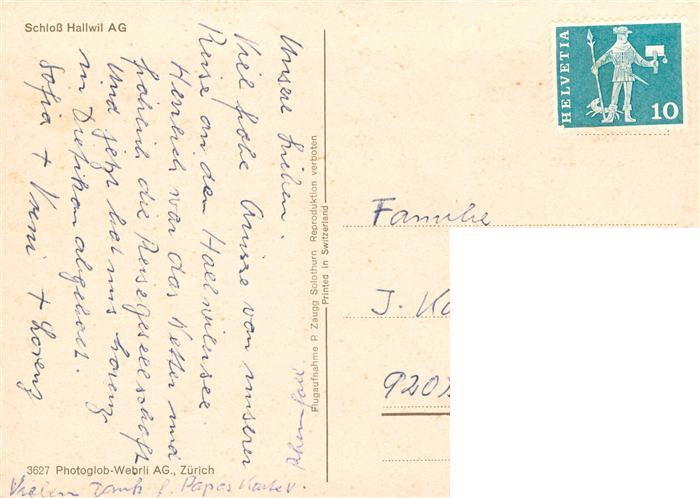 Schloß Hallwil AG
Unsere Lieben.
Viel frohe Grüsse von unserer
Reise an den Hallwilersee.
Herrlich war das Wetter und
fröhlich die Reisegesellschaft
Und jetzt hat uns Lorenz
in Dietikon abgeholt.
Sofia + Vreni + Lorenz
3627 Photoglob-Wehrli AG., Zürich
Vielen Dank f. Papas Karte v.
Flugaufnahme P. Zaugg Solothurn Reproduktion verboten
Printed in Switzerland
HELVETIA
10
Familie
J.
920